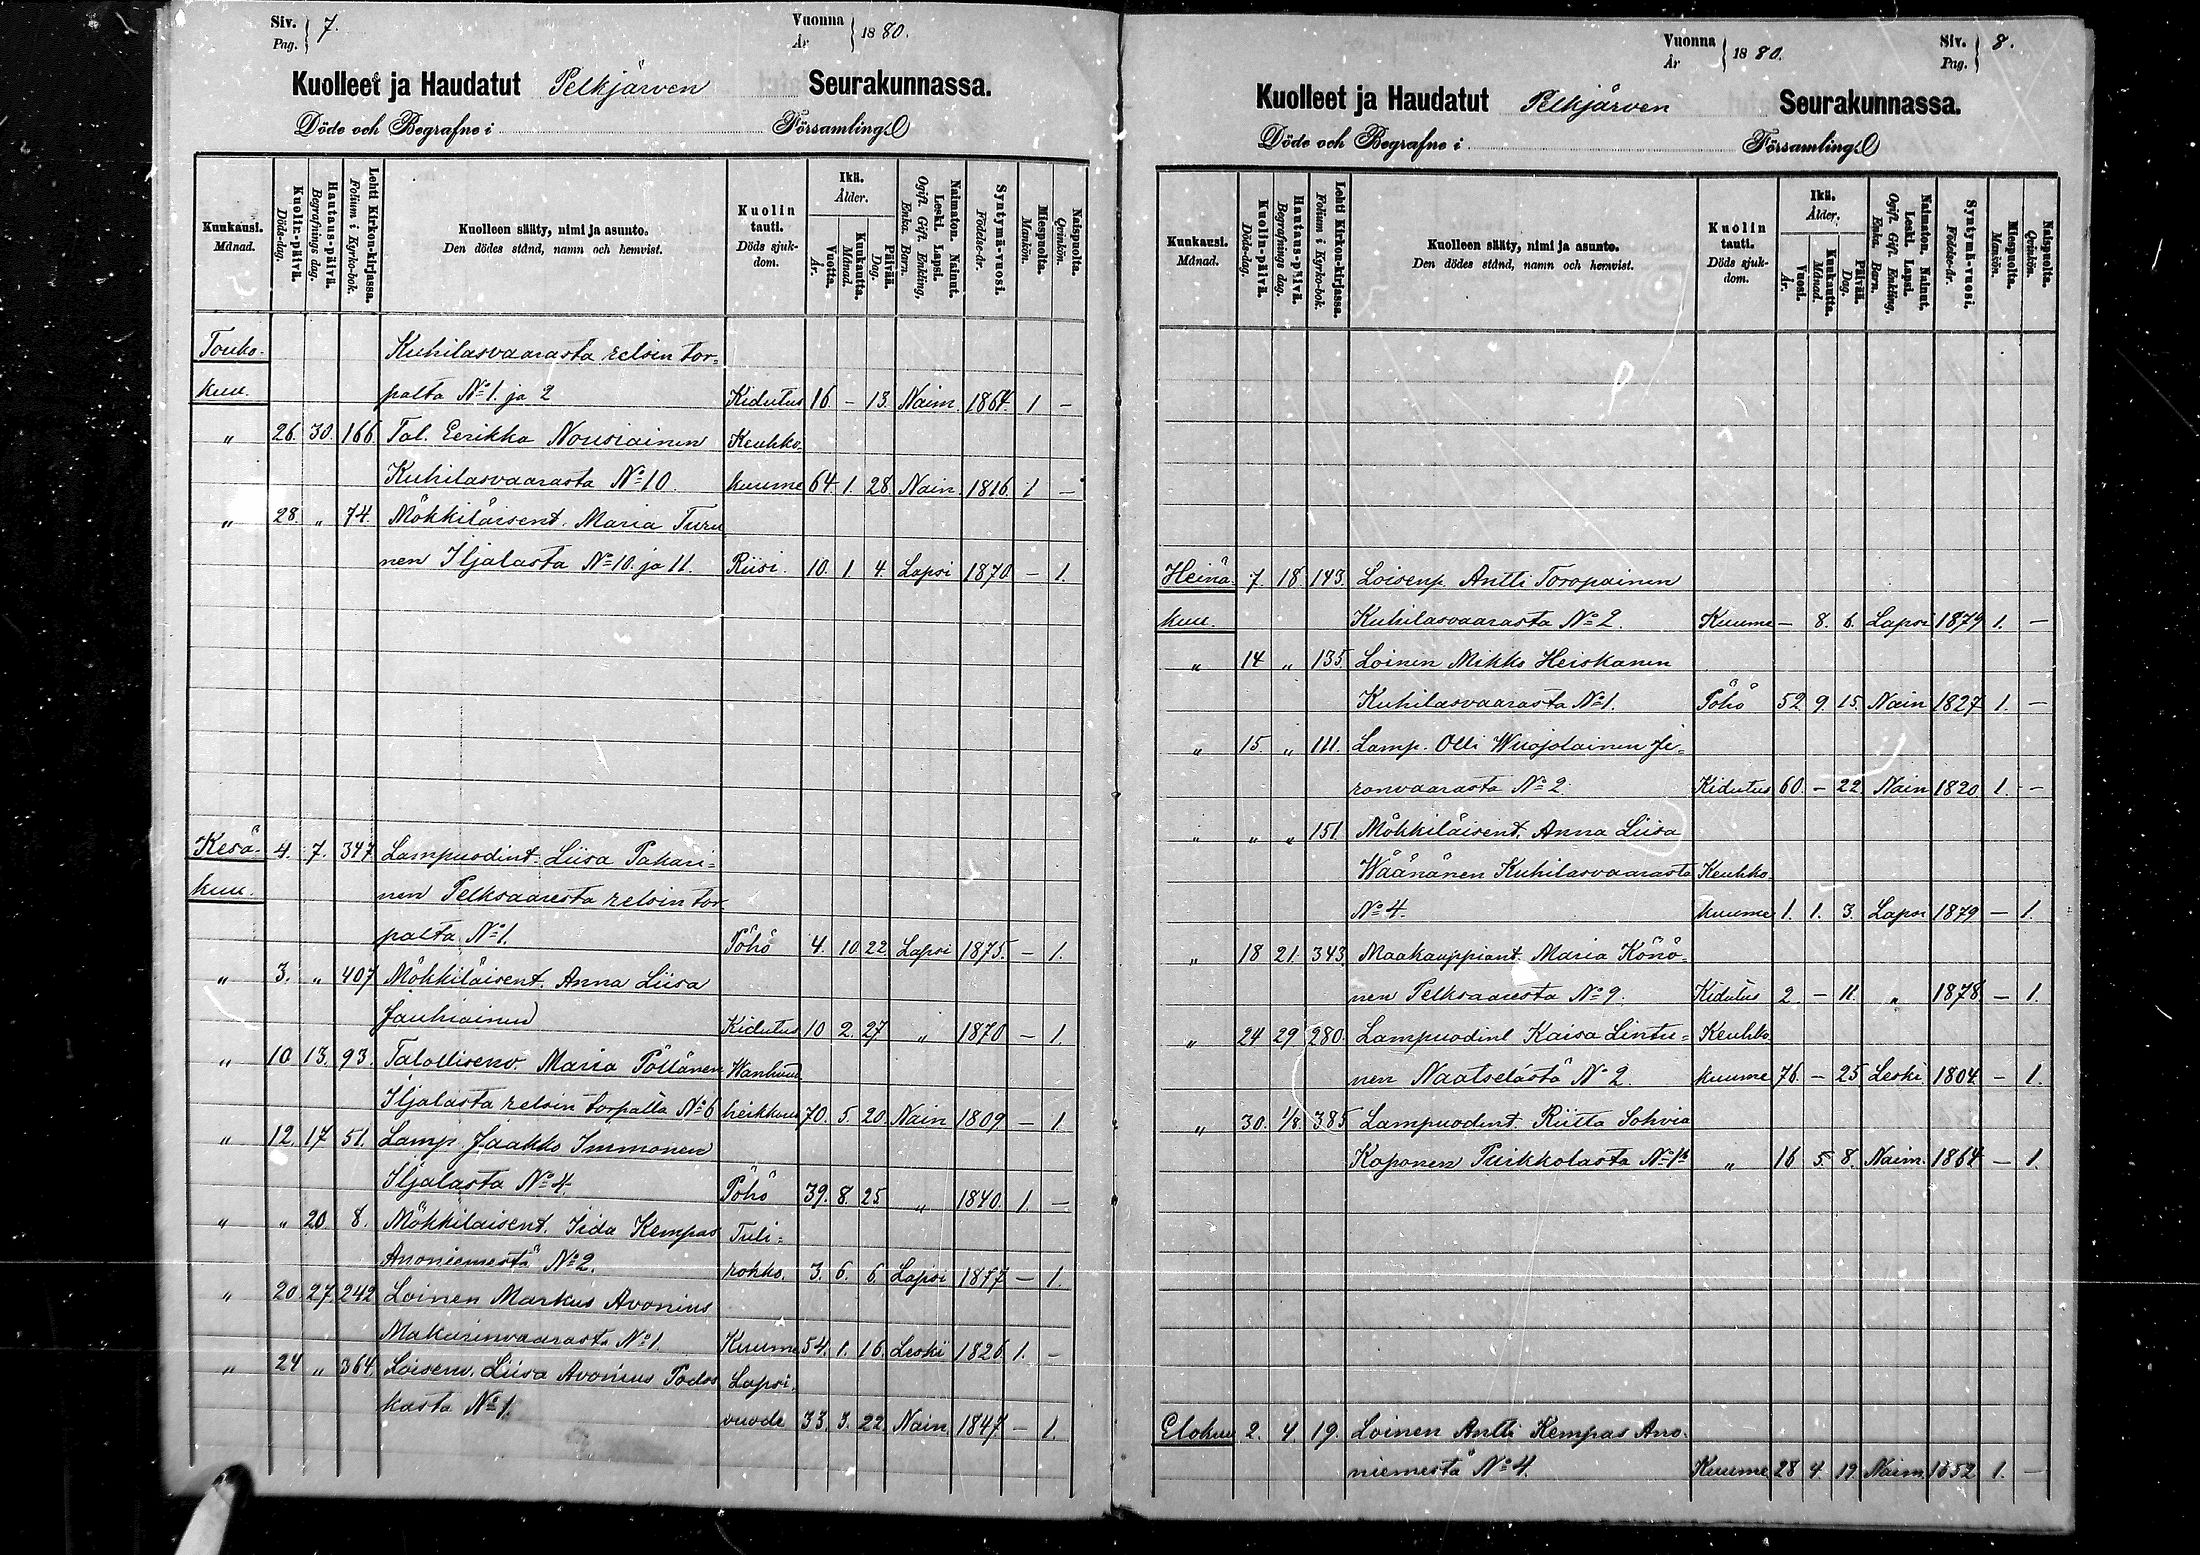 Siv. Pag. 7. Vuonna År 1880.
Kuolleet ja Haudatut Pelkjärven Seurakunnassa.
Döde och Begrafne i Församling.
Kuukausi. Månad.
Kuolin-päivä. Döds-dag.
Hautaus-päivä. Begrafnings dag.
Lehti Kirkon-kirjassa. Folium i Kyrko-bok.
Kuolleen sääty, nimi ja asunto.
Den dödes stånd, namn och hemvist.
Kuolin tauti. Döds sjukdom.
Ikä. Ålder.
Vuotta. År.
Kuukautta. Månad.
Päivää. Dag.
Naimaton. Nainut. Leski. Lapsi.
Ogift. Gift. Enkling, Enka. Barn.
Syntymä-vuosi. Födelse-år.
Miespuolta. Mankön.
Naispuolta. Qvinkön.
Touko- Kuhilasvaarasta relsin tor=
kuu. palta No 1. ja 2 Kidutus 16 – 13. Naim. 1864. 1 –
„ 26. 30. 166. Tal. Eerikka Nousiainen Keuhko-
Kuhilasvaarasta No 10. kuume 64. 1. 28. Nain. 1816. 1 –
„ 28. „ 74. Mökkiläisent. Maria Turu
nen Iljalasta No 10. ja 11. Riisi. 10. 1. 4. Lapsi 1870. – 1.
Kesä- 4. 7. 347 Lampuodint. Liisa Pakari=
kuu. nen Pelksaaresta relsin tor-
palta No 1. Pöhö 4. 10. 22. Lapsi 1875. – 1.
„ 3. „ 407 Mökkiläisent. Anna Liisa
Jauhiainen Kidutus 10 2. 27 „ 1870 – 1.
„ 10. 13. 93. Talollisenv. Maria Pöllänen Wanhuud.
Iljalasta relsin torpalta No 6 heikkous 70. 5. 20. Nain 1809 – 1.
„ 12. 17 51. Lamp. Jaakko Immonen
Iljalasta No 4. Pöhö 39. 8. 25. „ 1840. 1. –
„ „ 20. 8. Mökkiläisent. Iida Kempas Tuli=
Anoniemestä No 2. rohko. 3. 6. 6 Lapsi 1877 – 1.
„ 20 27. 242 Loinen Markus Avonius
Makarinvaarasta No 1. Kuume 54. 1. 16. Leski 1826 1. –
„ 24 „ 364. Loisenv. Liisa Avonius Pados Lapsi.
kasta No 1. vuode 33. 3. 22. Nain 1847 – 1.
Vuonna År 1880. Siv. Pag. 8.
Kuolleet ja Haudatut Pelkjärven Seurakunnassa.
Döde och Begrafne i Församling.
Kuukausi. Månad.
Kuolin-päivä. Döds-dag.
Hautaus-päivä. Begrafnings dag.
Lehti Kirkon-kirjassa. Folium i Kyrko-bok.
Kuolleen sääty, nimi ja asunto.
Den dödes stånd, namn och hemvist.
Kuolin tauti. Döds sjukdom.
Ikä. Ålder.
Vuosi. År.
Kuukautta. Månad.
Päivää. Dag.
Naimaton. Nainut. Leski. Lapsi.
Ogift. Gift. Enkling, Enka. Barn.
Syntymä-vuosi. Födelse-år.
Miespuolta. Mankön.
Naispuolta. Qvinkön.
Heinä- 7. 18. 143. Loisenp. Antti Toropainen
kuu. Kuhilasvaarasta No 2. Kuume – 8. 6. Lapsi 1879 1. –
„ 14 „ 135. Loinen Mikko Heiskanen
Kuhilasvaarasta No 1. Pöhö 52. 9. 15. Nain 1827 1. –
„ 15. „ 111. Lamp. Olli Wuojolainen Ji=
ronvaarasta No 2. Kidutus 60. – 22. Nain 1820. 1. –
„ „ „ 151. Mökkiläisent. Anna Liisa
Wäänänen Kuhilasvaarasta Keuhko-
No 4. kuume 1. 1. 3. Lapsi 1879 – 1.
„ 18 21. 343. Maakauppiant. Maria Könö=
nen Pelksaaresta No 9. Kidutus 2. – 11. „ 1878. – 1.
„ 24 29 280. Lampuodinl Kaisa Lintu= Keuhko-
nen Naatselästä No 2. kuume 76. – 25 Leski 1804. – 1.
„ 30. 1/8. 385 Lampuodint. Riitta Sohvia
Koponen Puikkolasta No 1b „ 16 5. 8. Naim. 1864 – 1.
Elokuu 2. 4. 19. Loinen Antti Kempas Ano-
niemestä No 4. Kuume 28 4. 19. Naim. 1852 1. –